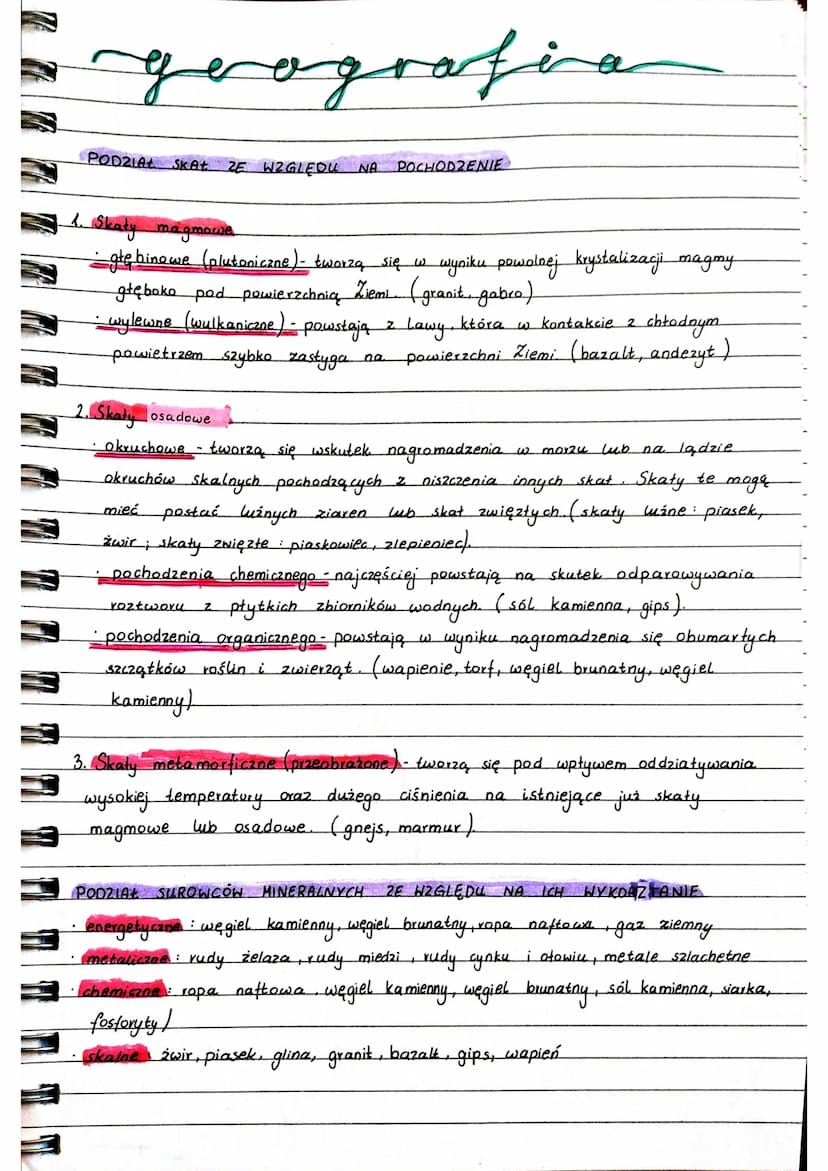 geografia
PODZIAŁ SKAŁ ZE WZGLĘDU NA POCHODZENIE
1. Skały magmowe
· głębinowe (plutoniczne) - tworzą się w wyniku powolnej krystalizacji magmy
głęboko pod powierzchnią Ziemi. (granit, gabro)
· wylewne (wulkaniczne) - powstają z lawy, która w kontakcie z chłodnym
powietrzem szybko zastyga na powierzchni Ziemi. (bazalt, andezyt)
2. Skały osadowe
· okruchowe - tworzą się wskutek nagromadzenia w morzu lub na lądzie
okruchów skalnych pochodzących z niszczenia innych skał. Skały te mogą
mieć postać luźnych ziaren lub skał zwięzłych. (skały luźne: piasek,
żwir; skały zwięzłe: piaskowiec, zlepieniec).
· pochodzenia chemicznego - najczęściej powstają na skutek odparowywania
roztworu z płytkich zbiorników wodnych. (sól kamienna, gips).
· pochodzenia organicznego - powstają w wyniku nagromadzenia się obumarłych
szczątków roślin i zwierząt. (wapienie, torf, węgiel brunatny, węgiel
kamienny)
3. Skały metamorficzne (przeobrażone) - tworzą się pod wpływem oddziaływania
wysokiej temperatury oraz dużego ciśnienia na istniejące już skały
magmowe lub osadowe. (gnejs, marmur).
PODZIAŁ SUROWCÓW MINERALNYCH ZE WZGLĘDU NA ICH WYKORZYSTANIE
· energetyczne: węgiel kamienny, węgiel brunatny, ropa naftowa, gaz ziemny
· metaliczne: rudy żelaza, rudy miedzi, rudy cynku i ołowiu, metale szlachetne
· chemiczne: ropa naftowa, węgiel kamienny, węgiel brunatny, sól kamienna, siarka,
fosforyty)
· skalne: żwir, piasek, glina, granit, bazalt, gips, wapień